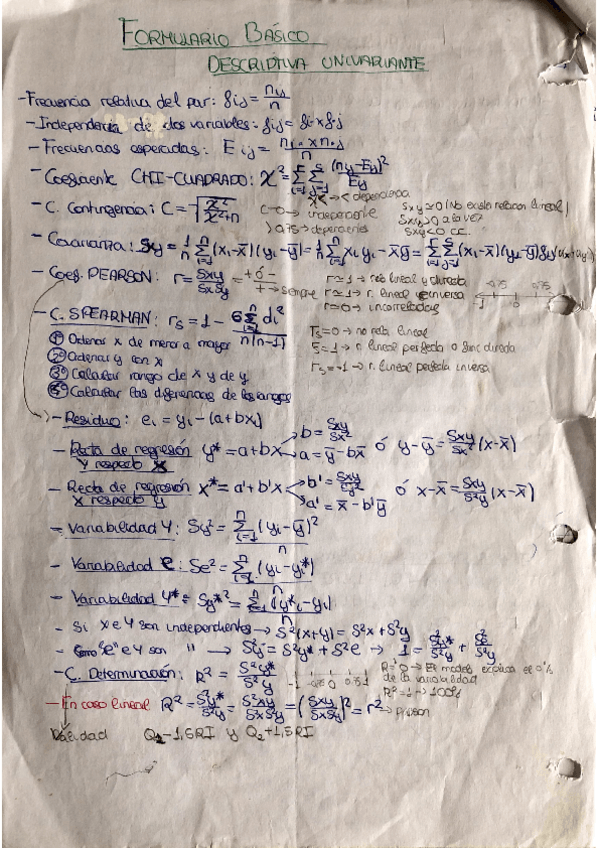 FORMULARIO BÁSICO
DESCRIPTIVA UNIVARIANTE
- Frecuencia relativa del par: fij = nij/n
- Independencia de dos variables: fij = fi· x f·j
- Frecuencias esperadas: Eij = ni· x n·j / n
- Coeficiente CHI-CUADRADO: χ² = Σ Σ (nij - Eij)² / Eij
< dependencia
- C. Contingencia: C = √(χ² / χ²+n)
C=0 → independiente
> 0,75 → dependientes
Sxy ≈ 0 (No existe relación lineal)
Sxy > 0 a la vez
Sxy < 0 c.c.
- Covarianza: Sxy = 1/n Σ (xi - x̄)(yi - ȳ) = 1/n Σ xi yi - x̄ȳ = Σ Σ (xi - x̄)(yj - ȳ) fij
- Coef. PEARSON: r = Sxy / SxSy = + ó - / + → siempre
r ≈ 1 → relac lineal y directa
r ≈ -1 → r. lineal e inversa
r = 0 → incorreladas
-0,75 0 0,75
-1 1
- C. SPEARMAN: rs = 1 - 6 Σ di² / n(n-1)
① Ordenar x de menor a mayor
② Ordenar y con x
③ Calcular rango de x y de y
④ Calcular las diferencias de los rangos
rs = 0 → no rela lineal
rs = 1 → r. lineal perfecta o func directa
rs = -1 → r. lineal perfecta inversa
- Residuo: ei = yi - (a + bxi)
- Recta de regresión y* = a + bx b = Sxy/Sx² a = ȳ - bx̄ ó y - ȳ = Sxy/Sx² (x - x̄)
Y respecto X
- Recta de regresión x* = a' + b'x b' = Sxy/Sy² a' = x̄ - b'ȳ ó x - x̄ = Sxy/S²y (x - x̄)
X respecto y
- Variabilidad Y: Sy² = Σ (yi - ȳ)² / n
- Variabilidad e: Se² = Σ (yi - yi*) / n
- Variabilidad Y*: Sy*² = Σ (y*i - yi) / n
- Si X e Y son independientes → S²(x+y) = S²x + S²y
- Como "e" e Y son " → S²y = S²y* + S²e → 1 = S²y*/S²y + S²e/S²y
- C. Determinación: R² = S²y* / S²y
-1 -0,75 0 0,75 1
R² = 0 → El modelo explica el 0%
de la variabilidad
R² = 1 → 100%
- En caso lineal R² = S²y*/S²y = S²xy/S²x S²y = (Sxy/SxSy)² = r² → Pearson
Validad Q1 - 1,5RI y Q2 + 1,5RI